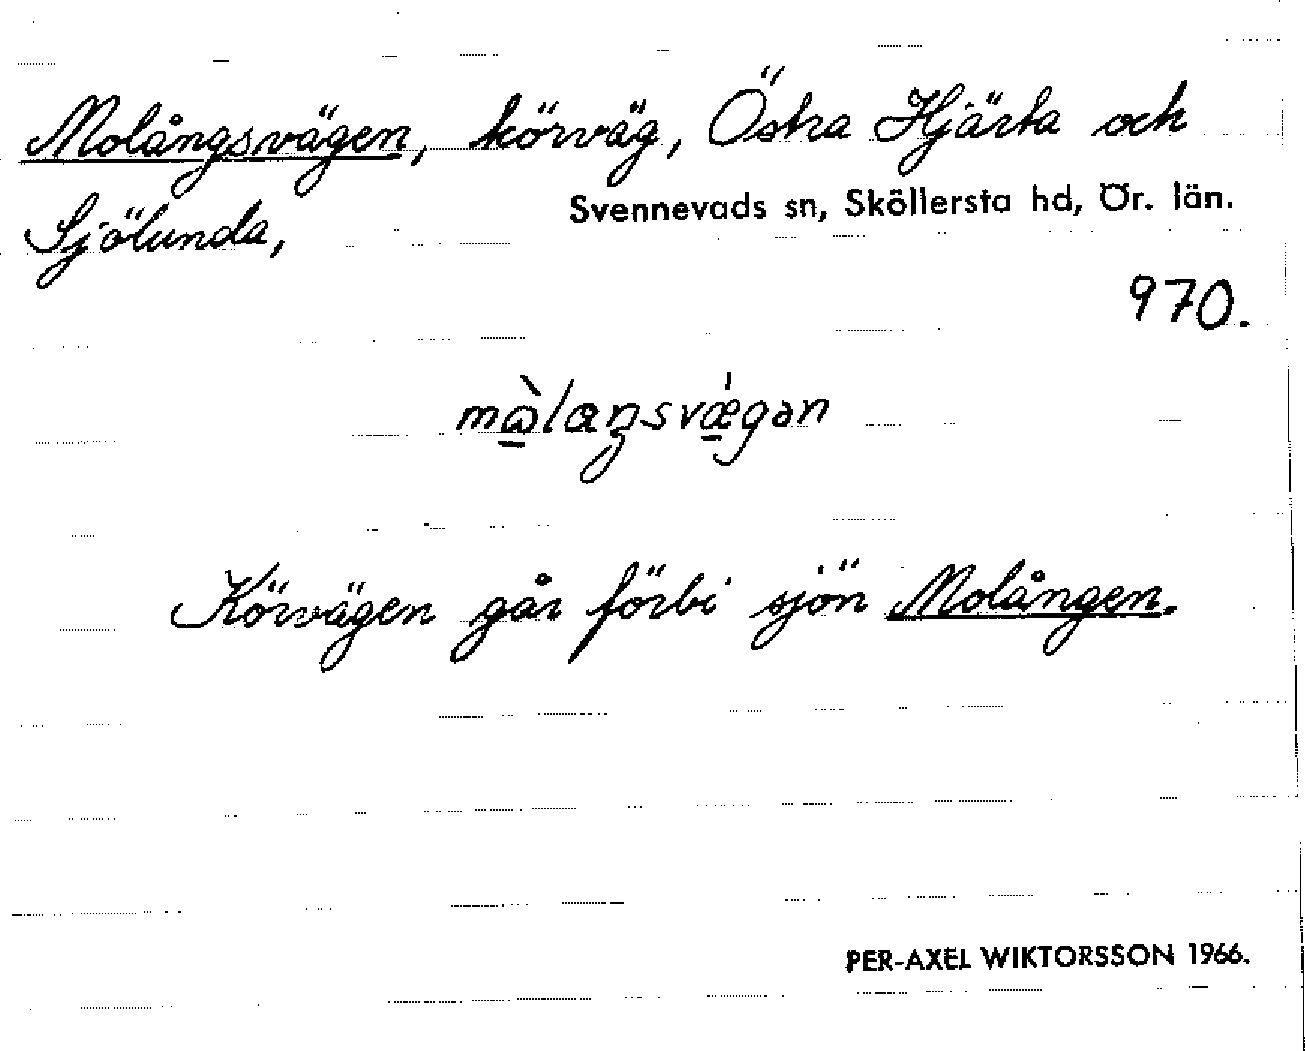 Molångsvägen, körväg, Östra Hjärta och
Sjölunda, Svennevads sn, Sköllersta hd, Ör. län.
970.
Körvägen går förbi sjön Molången.
PER-AXEL WIKTORSSON 1966.